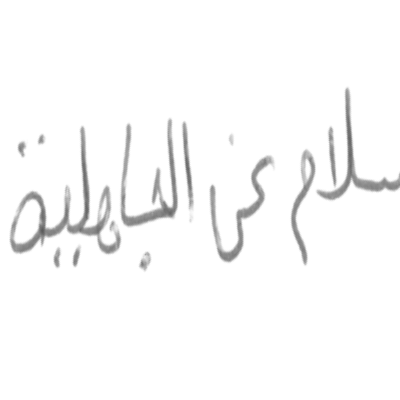 سلام عن الجاهلية